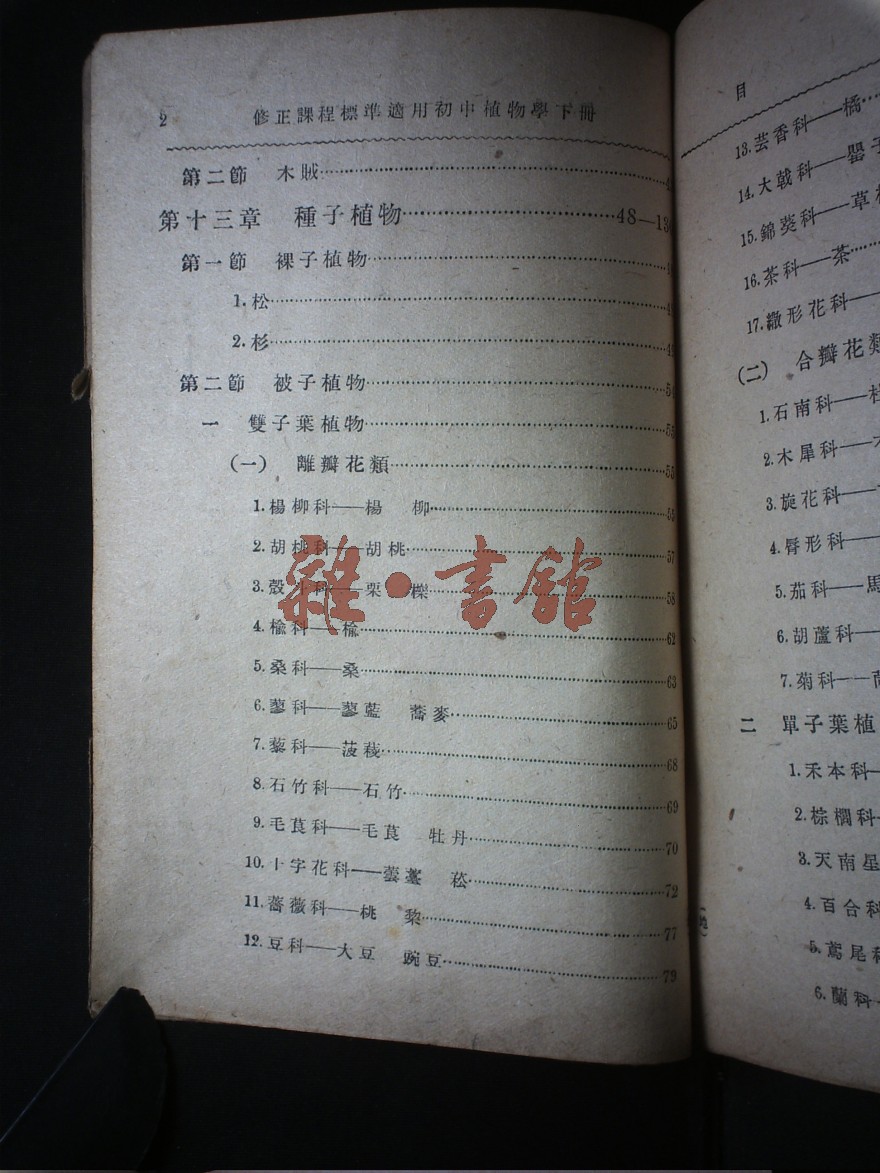 2 修正課程標準適用初中植物學下冊
第二節 木賊
第十三章 種子植物 48—13
第一節 裸子植物
1.松
2.杉
第二節 被子植物 54
一 雙子葉植物 55
(一) 離瓣花類 55
1.楊柳科——楊 柳 55
2.胡桃科——胡桃 57
3.殼斗科——栗 櫟 58
4.榆科——榆 62
5.桑科——桑 63
6.蓼科——蓼藍 蕎麥 65
7.藜科——菠薐 68
8.石竹科——石竹 69
9.毛茛科——毛茛 牡丹 70
10.十字花科——蕓薹 菘 72
11.薔薇科——桃 梨 77
12.豆科——大豆 豌豆 79
雜·書館
目
13.芸香科——橘
14.大戟科——罌子
15.錦葵科——草
16.茶科——茶
17.繖形花科——
(二) 合瓣花類
1.石南科——
2.木犀科——
3.旋花科——
4.脣形科——
5.茄科——馬
6.胡蘆科——
7.菊科——
二 單子葉植
1.禾本科—
2.棕櫚科—
3.天南星
4.百合科
5.鳶尾科
6.蘭科—